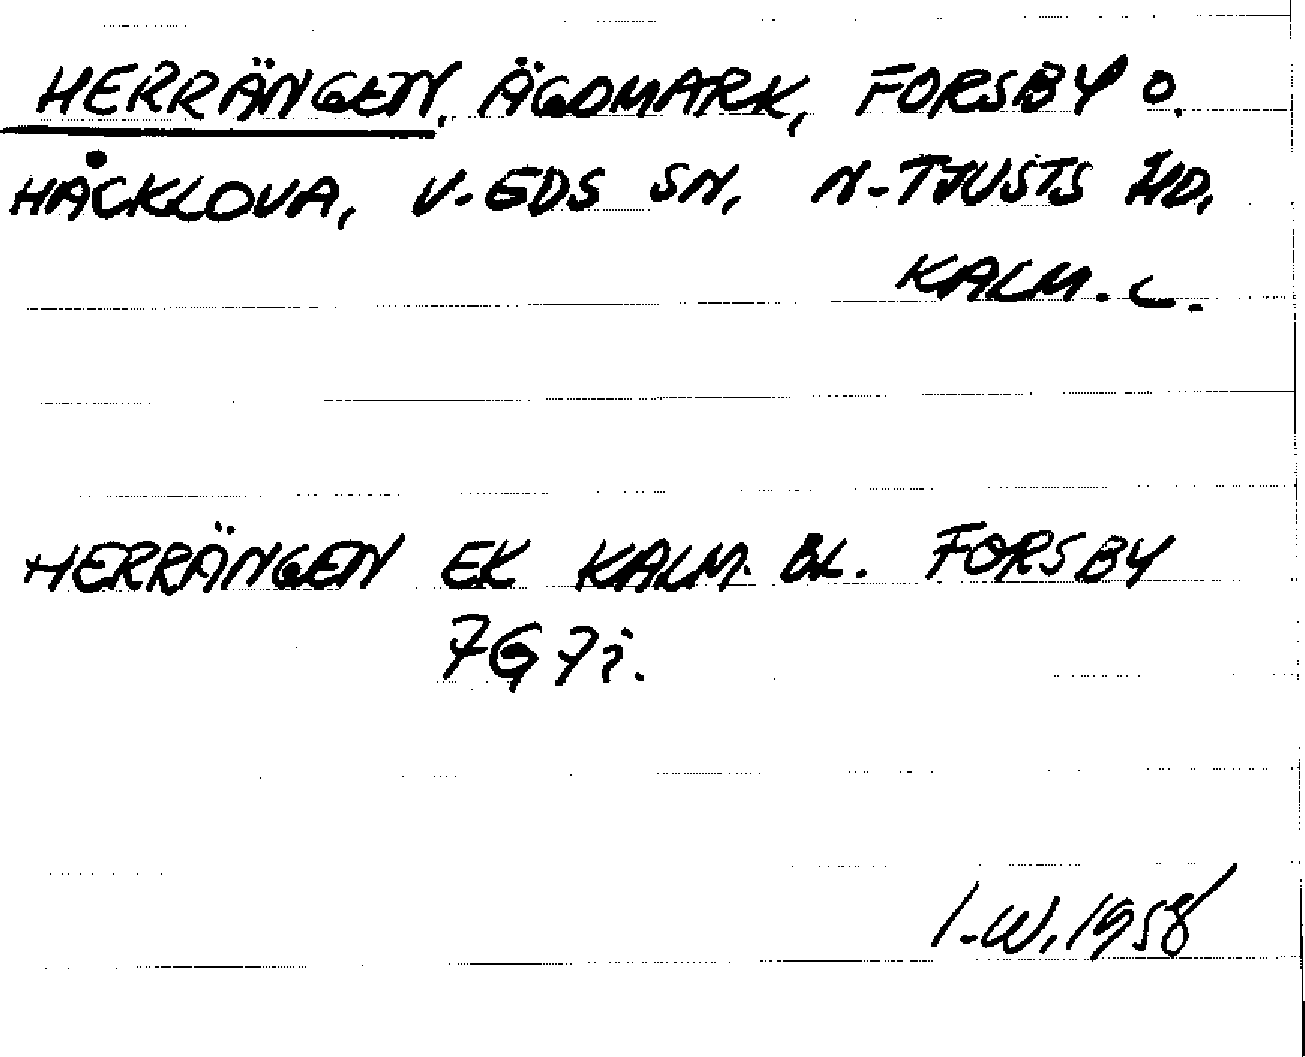 HERRÄNGEN, ÄGOMARK, FORSBY O.
HÅCKLOVA, V-EDS SN, N-TJUSTS HD,
KALM. L.
HERRÄNGEN EK KALM. BL. FORSBY
7G7i.
I.W. 1958